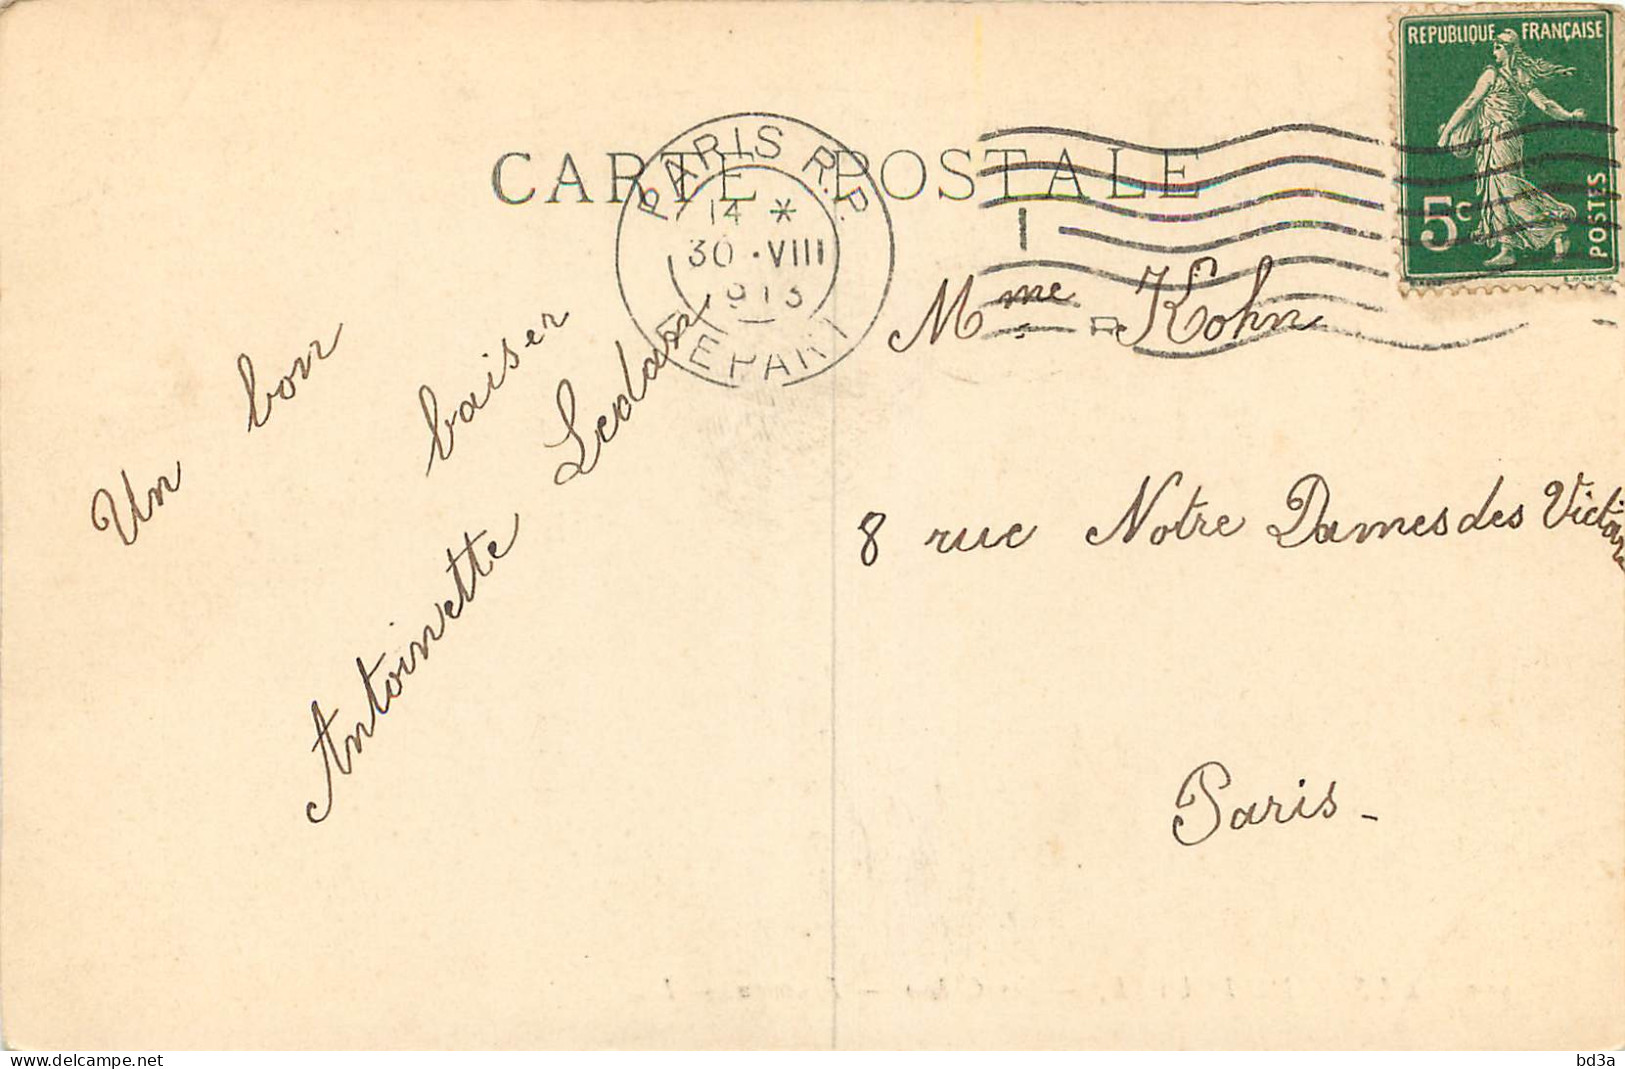 REPUBLIQUE FRANÇAISE
5c
POSTES
CARTE POSTALE
PARIS R.P.
14 *
30 · VIII
1913
DEPART
Mme Kohn
8 rue Notre Dames des
Paris -
Un bon baiser
Antoinette
www.delcampe.net
bd3a